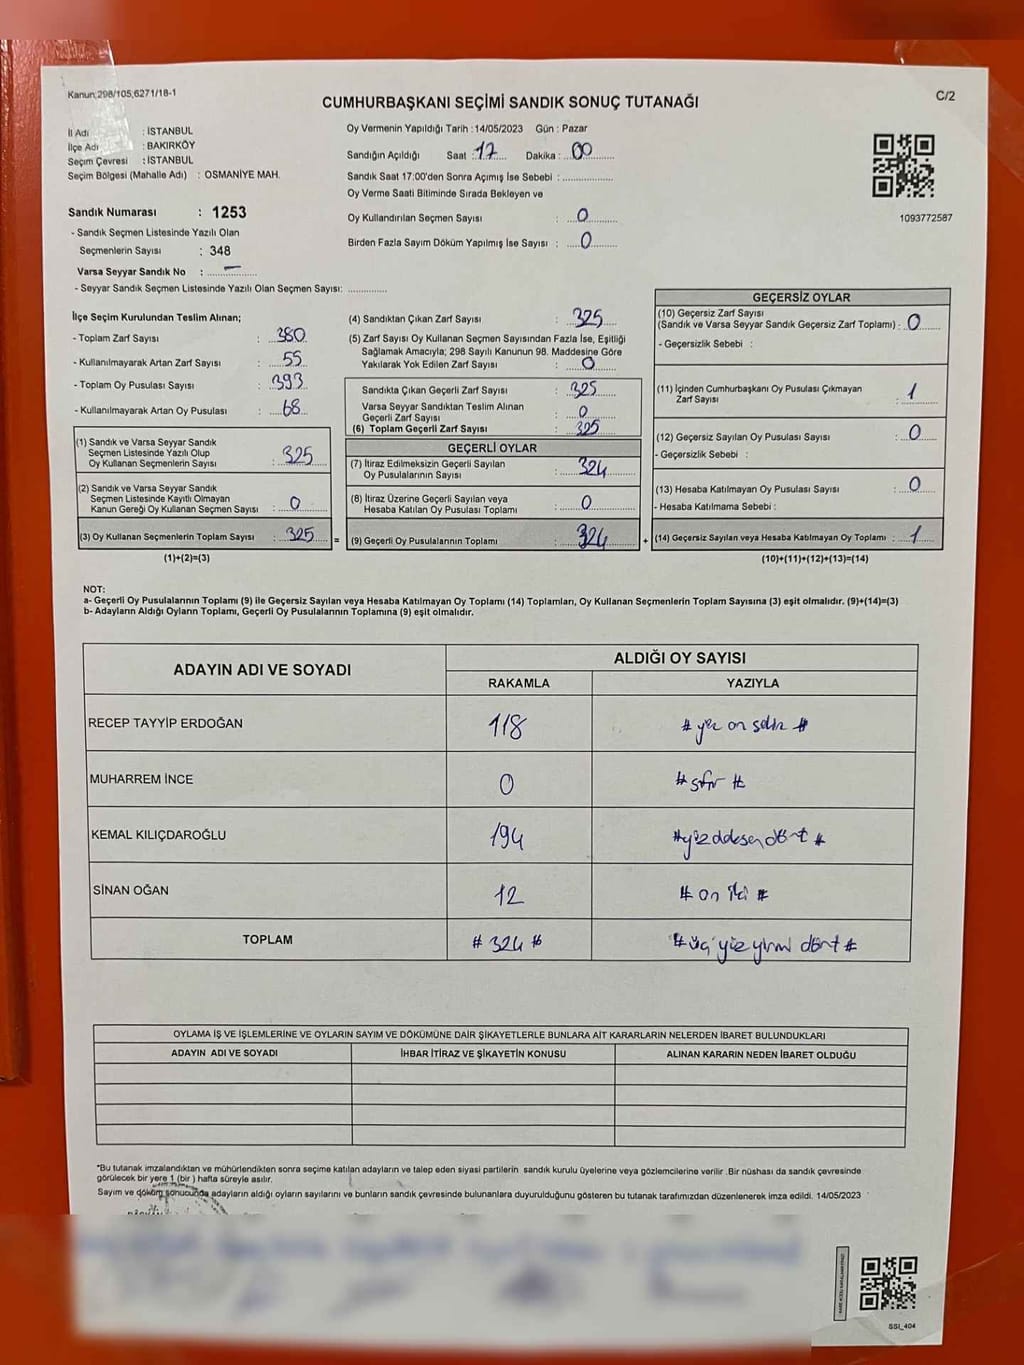 Kanun:298/105,6271/18-1
C/2
CUMHURBAŞKANI SEÇİMİ SANDIK SONUÇ TUTANAĞI
İl Adı : İSTANBUL
İlçe Adı : BAKIRKÖY
Seçim Çevresi : İSTANBUL
Seçim Bölgesi (Mahalle Adı) : OSMANİYE MAH.
Sandık Numarası : 1253
- Sandık Seçmen Listesinde Yazılı Olan
Seçmenlerin Sayısı : 348
Varsa Seyyar Sandık No : –
- Seyyar Sandık Seçmen Listesinde Yazılı Olan Seçmen Sayısı: ..............
Oy Vermenin Yapıldığı Tarih :14/05/2023 Gün : Pazar
Sandığın Açıldığı Saat : 17 Dakika : 00
Sandık Saat 17:00'den Sonra Açımış İse Sebebi : ..................
Oy Verme Saati Bitiminde Sırada Bekleyen ve
Oy Kullandırılan Seçmen Sayısı : 0
Birden Fazla Sayım Döküm Yapılmış İse Sayısı : 0
1093772587
İlçe Seçim Kurulundan Teslim Alınan;
- Toplam Zarf Sayısı : 380
- Kullanılmayarak Artan Zarf Sayısı : 55
- Toplam Oy Pusulası Sayısı : 393
- Kullanılmayarak Artan Oy Pusulası : 68
(1) Sandık ve Varsa Seyyar Sandık
Seçmen Listesinde Yazılı Olup
Oy Kullanan Seçmenlerin Sayısı : 325
(2) Sandık ve Varsa Seyyar Sandık
Seçmen Listesinde Kayıtlı Olmayan
Kanun Gereği Oy Kullanan Seçmen Sayısı : 0
(3) Oy Kullanan Seçmenlerin Toplam Sayısı : 325 =
(1)+(2)=(3)
(4) Sandıktan Çıkan Zarf Sayısı : 325
(5) Zarf Sayısı Oy Kullanan Seçmen Sayısından Fazla İse, Eşitliği
Sağlamak Amacıyla; 298 Sayılı Kanunun 98. Maddesine Göre
Yakılarak Yok Edilen Zarf Sayısı : 0
Sandıkta Çıkan Geçerli Zarf Sayısı : 325
Varsa Seyyar Sandıktan Teslim Alınan
Geçerli Zarf Sayısı : 0
(6) Toplam Geçerli Zarf Sayısı : 325
GEÇERLİ OYLAR
(7) İtiraz Edilmeksizin Geçerli Sayılan
Oy Pusulalarının Sayısı : 324
(8) İtiraz Üzerine Geçerli Sayılan veya
Hesaba Katılan Oy Pusulası Toplamı : 0
(9) Geçerli Oy Pusulalarının Toplamı : 324 +
GEÇERSİZ OYLAR
(10) Geçersiz Zarf Sayısı
(Sandık ve Varsa Seyyar Sandık Geçersiz Zarf Toplamı) : 0
- Geçersizlik Sebebi :
(11) İçinden Cumhurbaşkanı Oy Pusulası Çıkmayan
Zarf Sayısı : 1
(12) Geçersiz Sayılan Oy Pusulası Sayısı : 0
- Geçersizlik Sebebi :
(13) Hesaba Katılmayan Oy Pusulası Sayısı : 0
- Hesaba Katılmama Sebebi :
(14) Geçersiz Sayılan veya Hesaba Katılmayan Oy Toplamı : 1
(10)+(11)+(12)+(13)=(14)
NOT:
a- Geçerli Oy Pusulalarının Toplamı (9) ile Geçersiz Sayılan veya Hesaba Katılmayan Oy Toplamı (14) Toplamları, Oy Kullanan Seçmenlerin Toplam Sayısına (3) eşit olmalıdır. (9)+(14)=(3)
b- Adayların Aldığı Oyların Toplamı, Geçerli Oy Pusulalarının Toplamına (9) eşit olmalıdır.
ADAYIN ADI VE SOYADI ALDIĞI OY SAYISI
RAKAMLA YAZIYLA
RECEP TAYYİP ERDOĞAN 118 # yüz on sekiz #
MUHARREM İNCE 0 # sıfır #
KEMAL KILIÇDAROĞLU 194 # yüz doksan dört #
SİNAN OĞAN 12 # on iki #
TOPLAM # 324 # # üç yüz yirmi dört #
OYLAMA İŞ VE İŞLEMLERİNE VE OYLARIN SAYIM VE DÖKÜMÜNE DAİR ŞİKAYETLERLE BUNLARA AİT KARARLARIN NELERDEN İBARET BULUNDUKLARI
ADAYIN ADI VE SOYADI İHBAR İTİRAZ VE ŞİKAYETİN KONUSU ALINAN KARARIN NEDEN İBARET OLDUĞU
*Bu tutanak imzalandıktan ve mühürlendikten sonra seçime katılan adayların ve talep eden siyasi partilerin sandık kurulu üyelerine veya gözlemcilerine verilir .Bir nüshası da sandık çevresinde
görülecek bir yere 1 (bir ) hafta süreyle asılır.
Sayım ve döküm sonucunda adayların aldığı oyların sayılarını ve bunların sandık çevresinde bulunanlara duyurulduğunu gösteren bu tutanak tarafımızdan düzenlenerek imza edildi. 14/05/2023
SSI_404